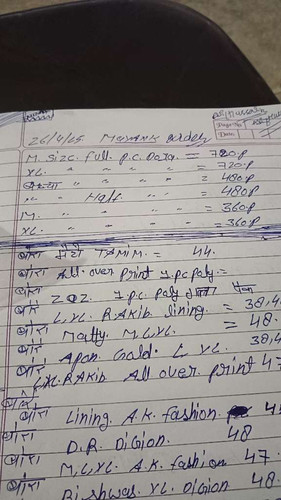 Page No.
Date
26/4/25 MAYANK
M. SIZE. full. P.C. DaTa. = 720.P
XL. " " " " = 720.P
" " " " = 480.P
" " Half " " = 480.P
M. " " " " = 360.P
XL. " " " " = 360.P
बोरा मेरी TAMIM. = 44.
बोरा All over print 1.pc paly =
बोरा 202. 1.pc. paly
बोरा L, XL. RAKIB. lining. = 38,4
बोरा Matty. M.L.XL. = 48.
बोरा Apon. Gold. L XL. 38,4
L.XL. RAKIB. All over print 47
बोरा Lining. A.K. fashion 4
बोरा D.R. DIGION. 48
बोरा M.L.XL. A.K. fashion 47.
बोरा Bishwas. XL. DIGION 48